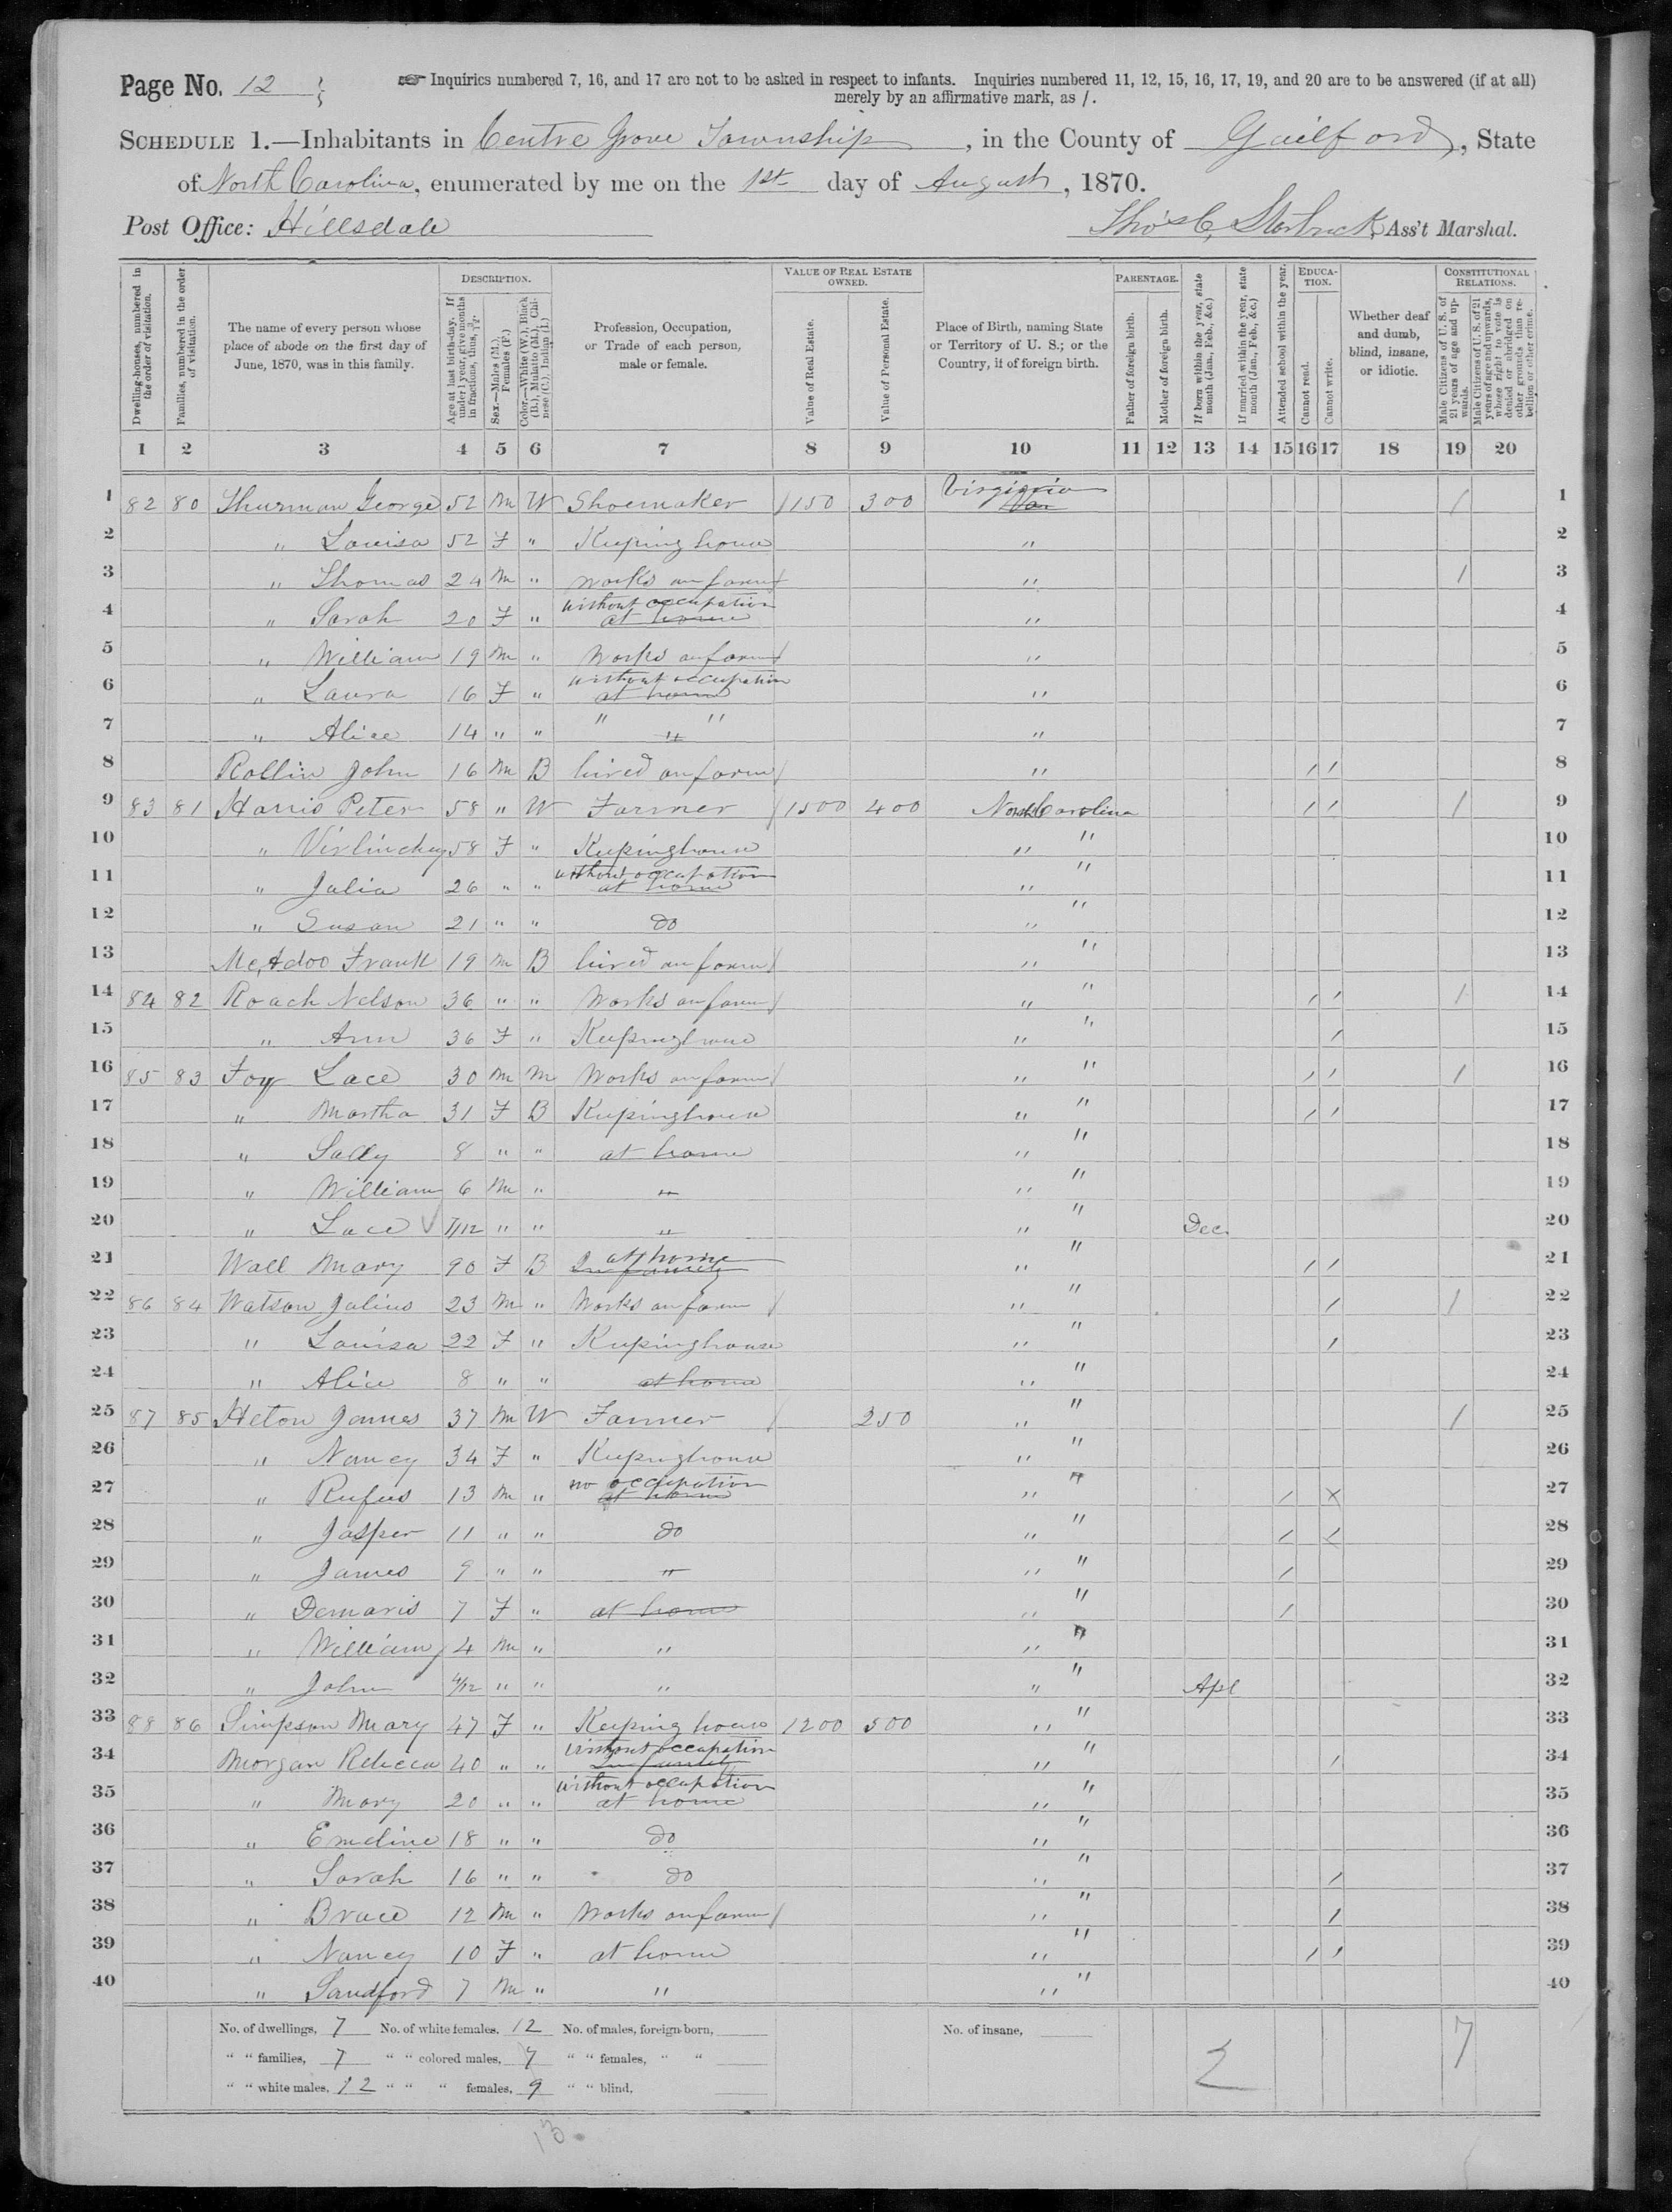 Page No. 12
☞ Inquiries numbered 7, 16, and 17 are not to be asked in respect to infants. Inquiries numbered 11, 12, 15, 16, 17, 19, and 20 are to be answered (if at all)
merely by an affirmative mark, as /.
SCHEDULE 1.—Inhabitants in Centre Grove Township, in the County of Guilford, State
of North Carolina, enumerated by me on the 1st day of August, 1870.
Post Office: Hillsdale
Thos C. Starbuck, Ass't Marshal.
Dwelling-houses, numbered in the order of visitation.
Families, numbered in the order of visitation.
The name of every person whose place of abode on the first day of June, 1870, was in this family.
DESCRIPTION.
Age at last birth-day. If under 1 year, give months in fractions, thus, 3/12.
Sex.—Males (M.), Females (F.)
Color.—White (W.), Black (B.), Mulatto (M.), Chinese (C.), Indian (I.)
Profession, Occupation, or Trade of each person, male or female.
VALUE OF REAL ESTATE OWNED.
Value of Real Estate.
Value of Personal Estate.
Place of Birth, naming State or Territory of U. S.; or the Country, if of foreign birth.
PARENTAGE.
Father of foreign birth.
Mother of foreign birth.
If born within the year, state month (Jan., Feb., &c.)
If married within the year, state month (Jan., Feb., &c.)
Attended school within the year.
EDUCATION.
Cannot read.
Cannot write.
Whether deaf and dumb, blind, insane, or idiotic.
CONSTITUTIONAL RELATIONS.
Male Citizens of U. S. of 21 years of age and upwards.
Male Citizens of U. S. of 21 years of age and upwards, whose right to vote is denied or abridged on other grounds than rebellion or other crime.
1 2 3 4 5 6 7 8 9 10 11 12 13 14 15 16 17 18 19 20
1 82 80 Thurman George 52 M W Shoemaker / 150 300 Virginia / 1
2 " Louisa 52 F " Keeping house " 2
3 " Thomas 24 M " Works on farm / " / 3
4 " Sarah 20 F " without occupation at home " 4
5 " William 19 M " Works on farm / " 5
6 " Laura 16 F " without occupation at home " 6
7 " Alice 14 " " " " " " 7
8 Rollin John 16 M B hired on farm / " / / 8
9 83 81 Harris Peter 58 " W Farmer / 1500 400 North Carolina / / / 9
10 " Virlinchey 58 F " Keeping house " " 10
11 " Julia 26 " " without occupation at home " " 11
12 " Susan 21 " " do " " 12
13 McAdoo Frank 19 M B hired on farm / " " 13
14 84 82 Roach Nelson 36 " " Works on farm / " " / / / 14
15 " Ann 36 F " Keeping house " " / 15
16 85 83 Foy Lace 30 M M Works on farm / " " / / / 16
17 " Martha 31 F B Keeping house " " / / 17
18 " Sally 8 " " at home " " 18
19 " William 6 M " " " " 19
20 " Lace √ 7/12 " " " " " Dec. 20
21 Wall Mary 90 F B at home In family " " / / 21
22 86 84 Watson Julius 23 M " Works on farm / " " / / 22
23 " Louisa 22 F " Keeping house " " / 23
24 " Alice 8 " " at home " " 24
25 87 85 Heton James 37 M W Farmer / 250 " " / 25
26 " Nancy 34 F " Keeping house " " 26
27 " Rufus 13 M " no occupation at home " " / × 27
28 " Jasper 11 " " do " " / / 28
29 " James 9 " " " " " / 29
30 " Demaris 7 F " at home " " / 30
31 " William 4 M " " " " 31
32 " John 4/12 " " " " " Apl 32
33 88 86 Simpson Mary 47 F " Keeping house 1200 500 " " 33
34 Morgan Rebecca 40 " " without occupation In family " " / 34
35 " Mary 20 " " without occupation at home " " 35
36 " Emeline 18 " " do " " 36
37 " Sarah 16 " " do " " / 37
38 " Brace 12 M " Works on farm / " " / 38
39 " Nancy 10 F " at home " " / / 39
40 " Sandford 7 M " " " " 40
No. of dwellings, 7 No. of white females, 12 No. of males, foreign-born, No. of insane, 2 7
" " families, 7 " " colored males, 7 " " females, " "
" " white males, 12 " " " females, 9 " " blind,
13